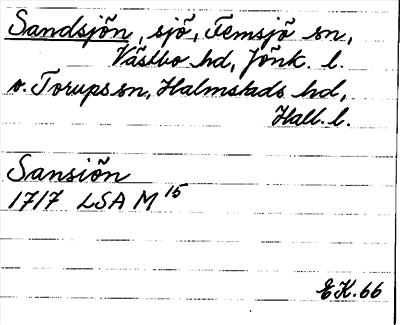 Sandsjön, sjö, Femsjö sn,
Västbo hd, Jönk. l.
o. Torups sn, Halmstads hd,
Hall. l.
Sansiön
1717 LSA M 15
EK.66